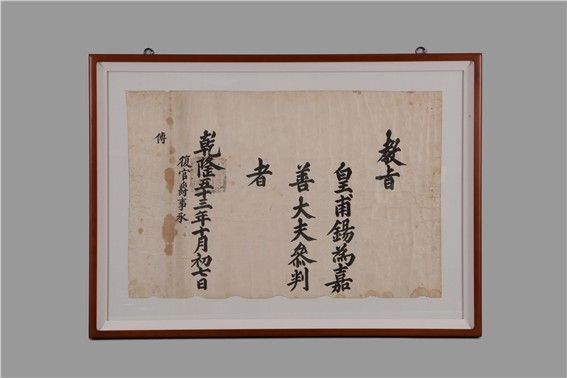 敎旨
皇甫鍚為嘉
善大夫叅判
者
乾隆五十三年十月初七日
復官爵事承
傳